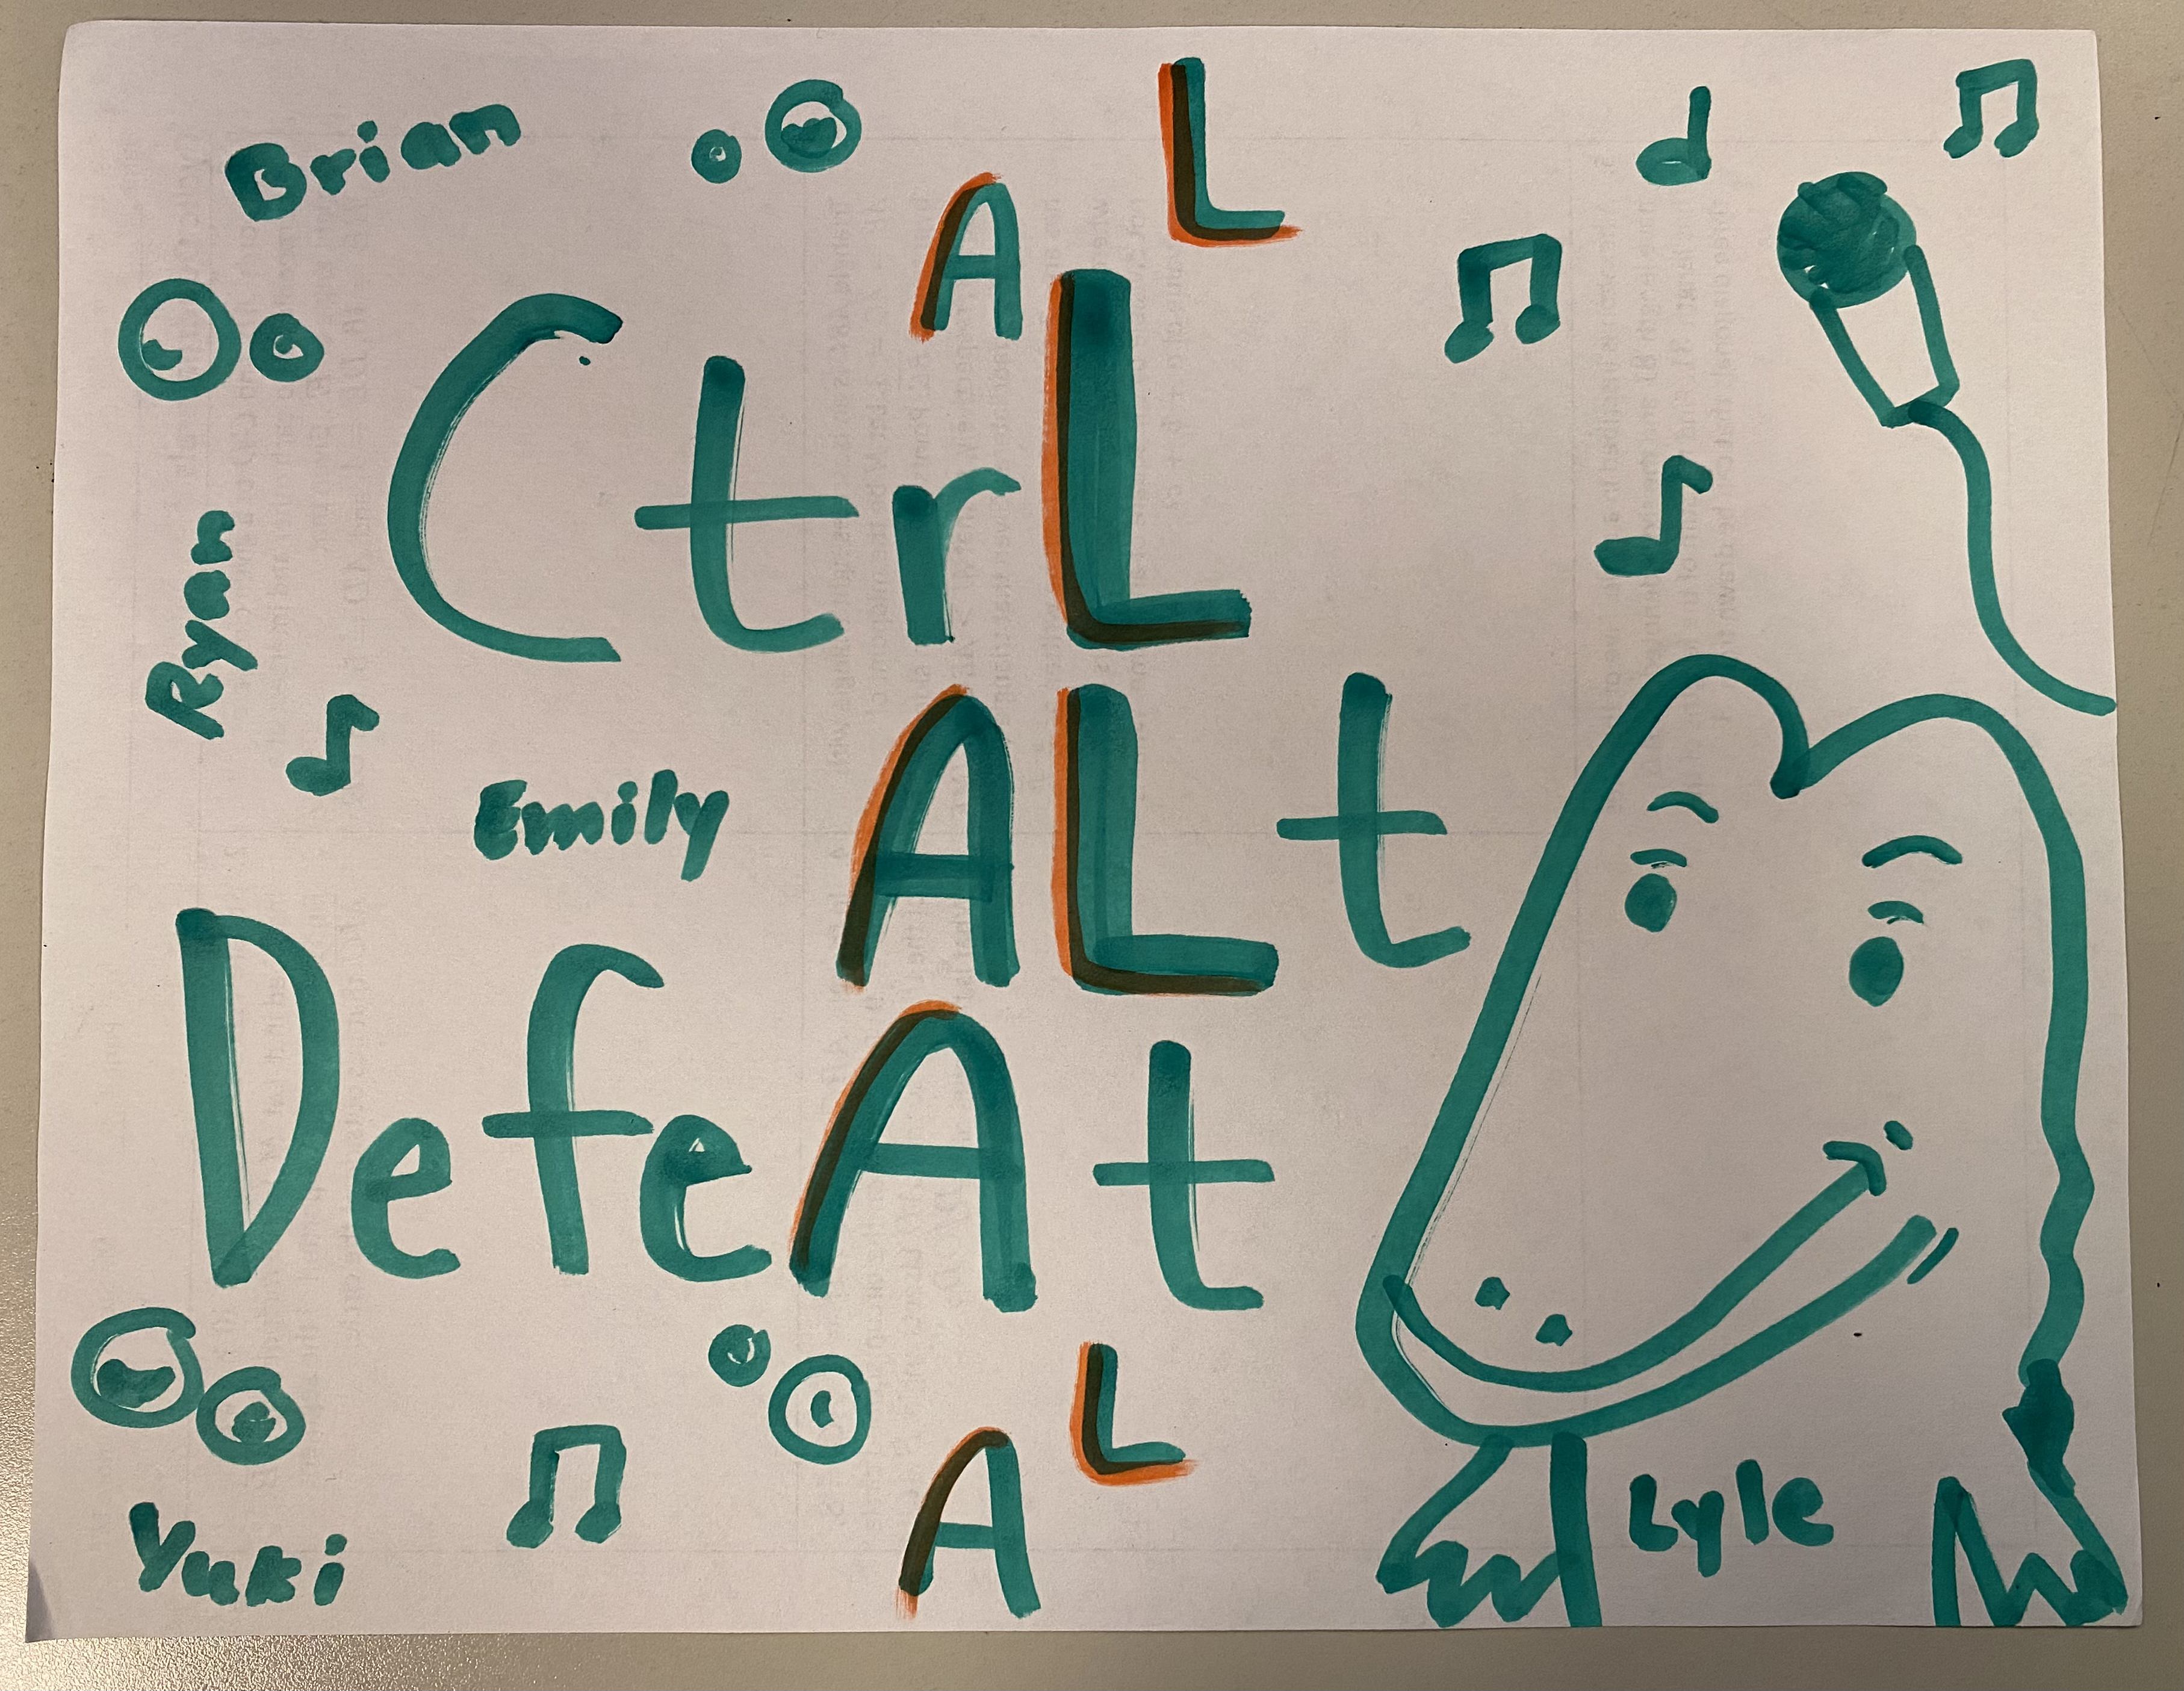 Brian
A L
CtrL
Ryan
Emily
ALt
DefeAt
A L
Yuki
Lyle